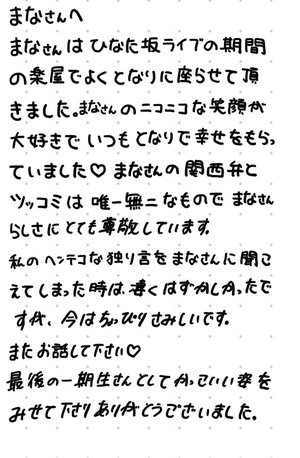 まなさんへ
まなさんはひなた坂ライブの期間
の楽屋でよくとなりに座らせて頂
きました。まなさんのニコニコな笑顔が
大好きでいつもとなりで幸せをもらっ
ていました♡ まなさんの関西弁と
ツッコミは唯一無二なものでまなさん
らしさにとても尊敬しています。
私のヘンテコな独り言をまなさんに聞こ
えてしまった時は凄くはずかしかったで
すが、今はちょっぴりさみしいです。
またお話して下さい♡
最後の一期生さんとしてかっこいい姿を
みせて下さりありがとうございました。